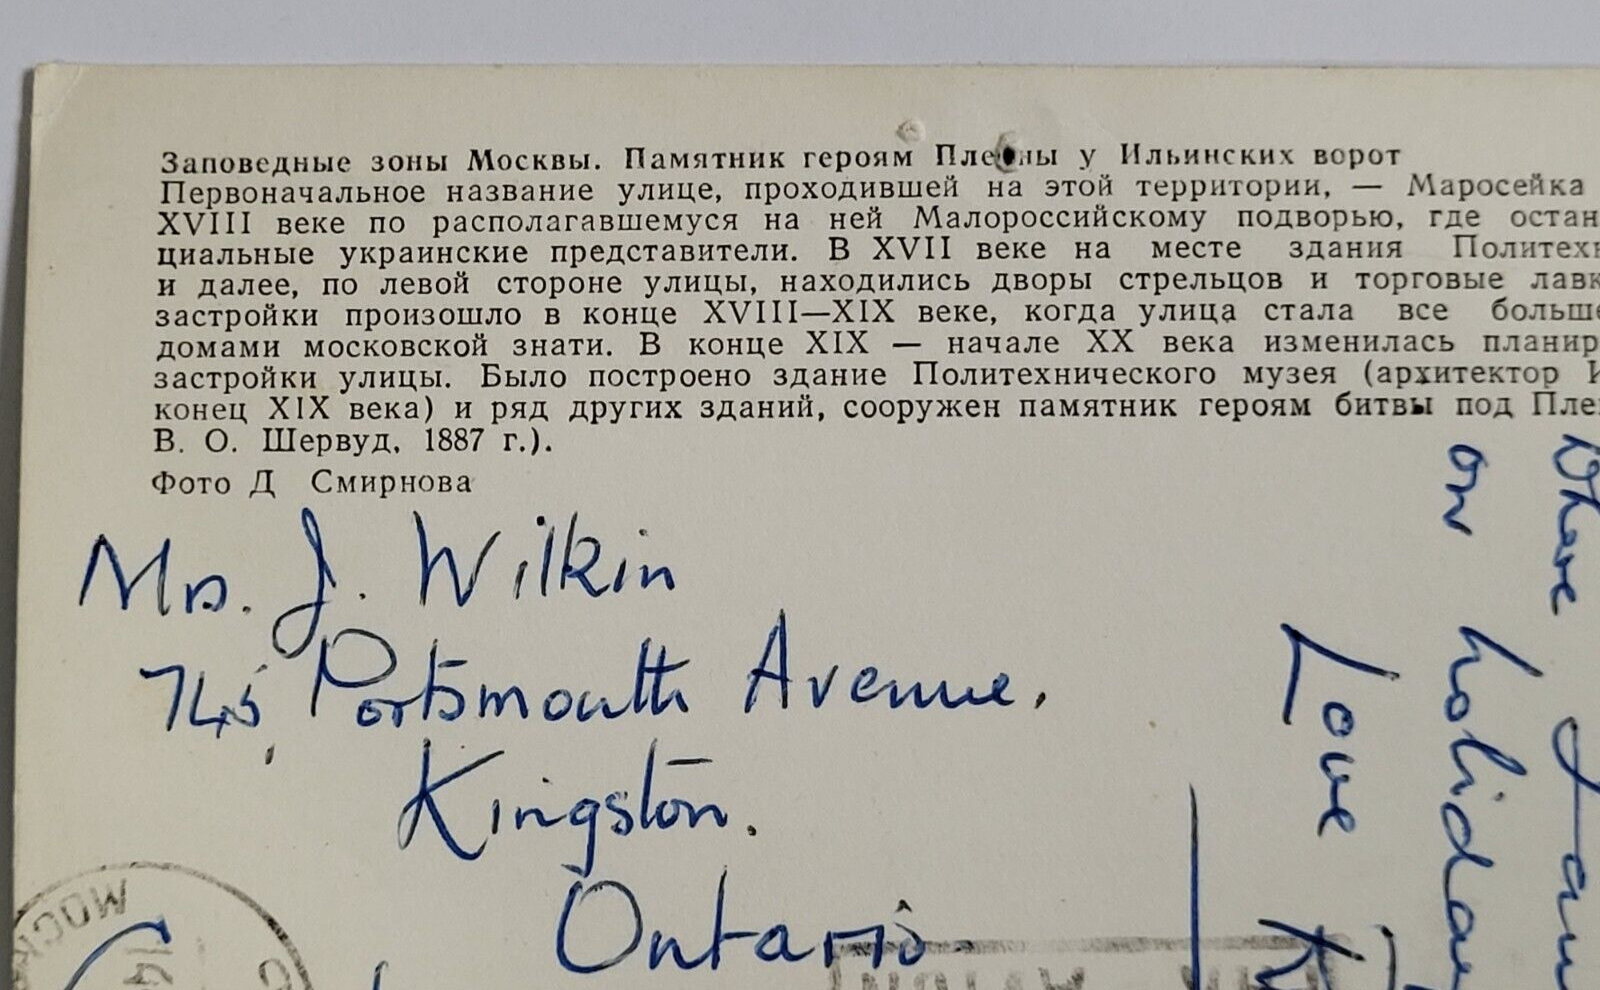 Заповедные зоны Москвы. Памятник героям Плевны у Ильинских ворот
Первоначальное название улице, проходившей на этой территории, — Маросейка
XVIII веке по располагавшемуся на ней Малороссийскому подворью, где остан
циальные украинские представители. В XVII веке на месте здания Политехн
и далее, по левой стороне улицы, находились дворы стрельцов и торговые лавк
застройки произошло в конце XVIII—XIX веке, когда улица стала все больше
домами московской знати. В конце XIX — начале XX века изменилась планир
застройки улицы. Было построено здание Политехнического музея (архитектор И
конец XIX века) и ряд других зданий, сооружен памятник героям битвы под Пле
В. О. Шервуд, 1887 г.).
Фото Д Смирнова
Mrs. J. Wilkin
745, Portsmouth Avenue.
Kingston.
Ontario
on holiday
Love
МОСК